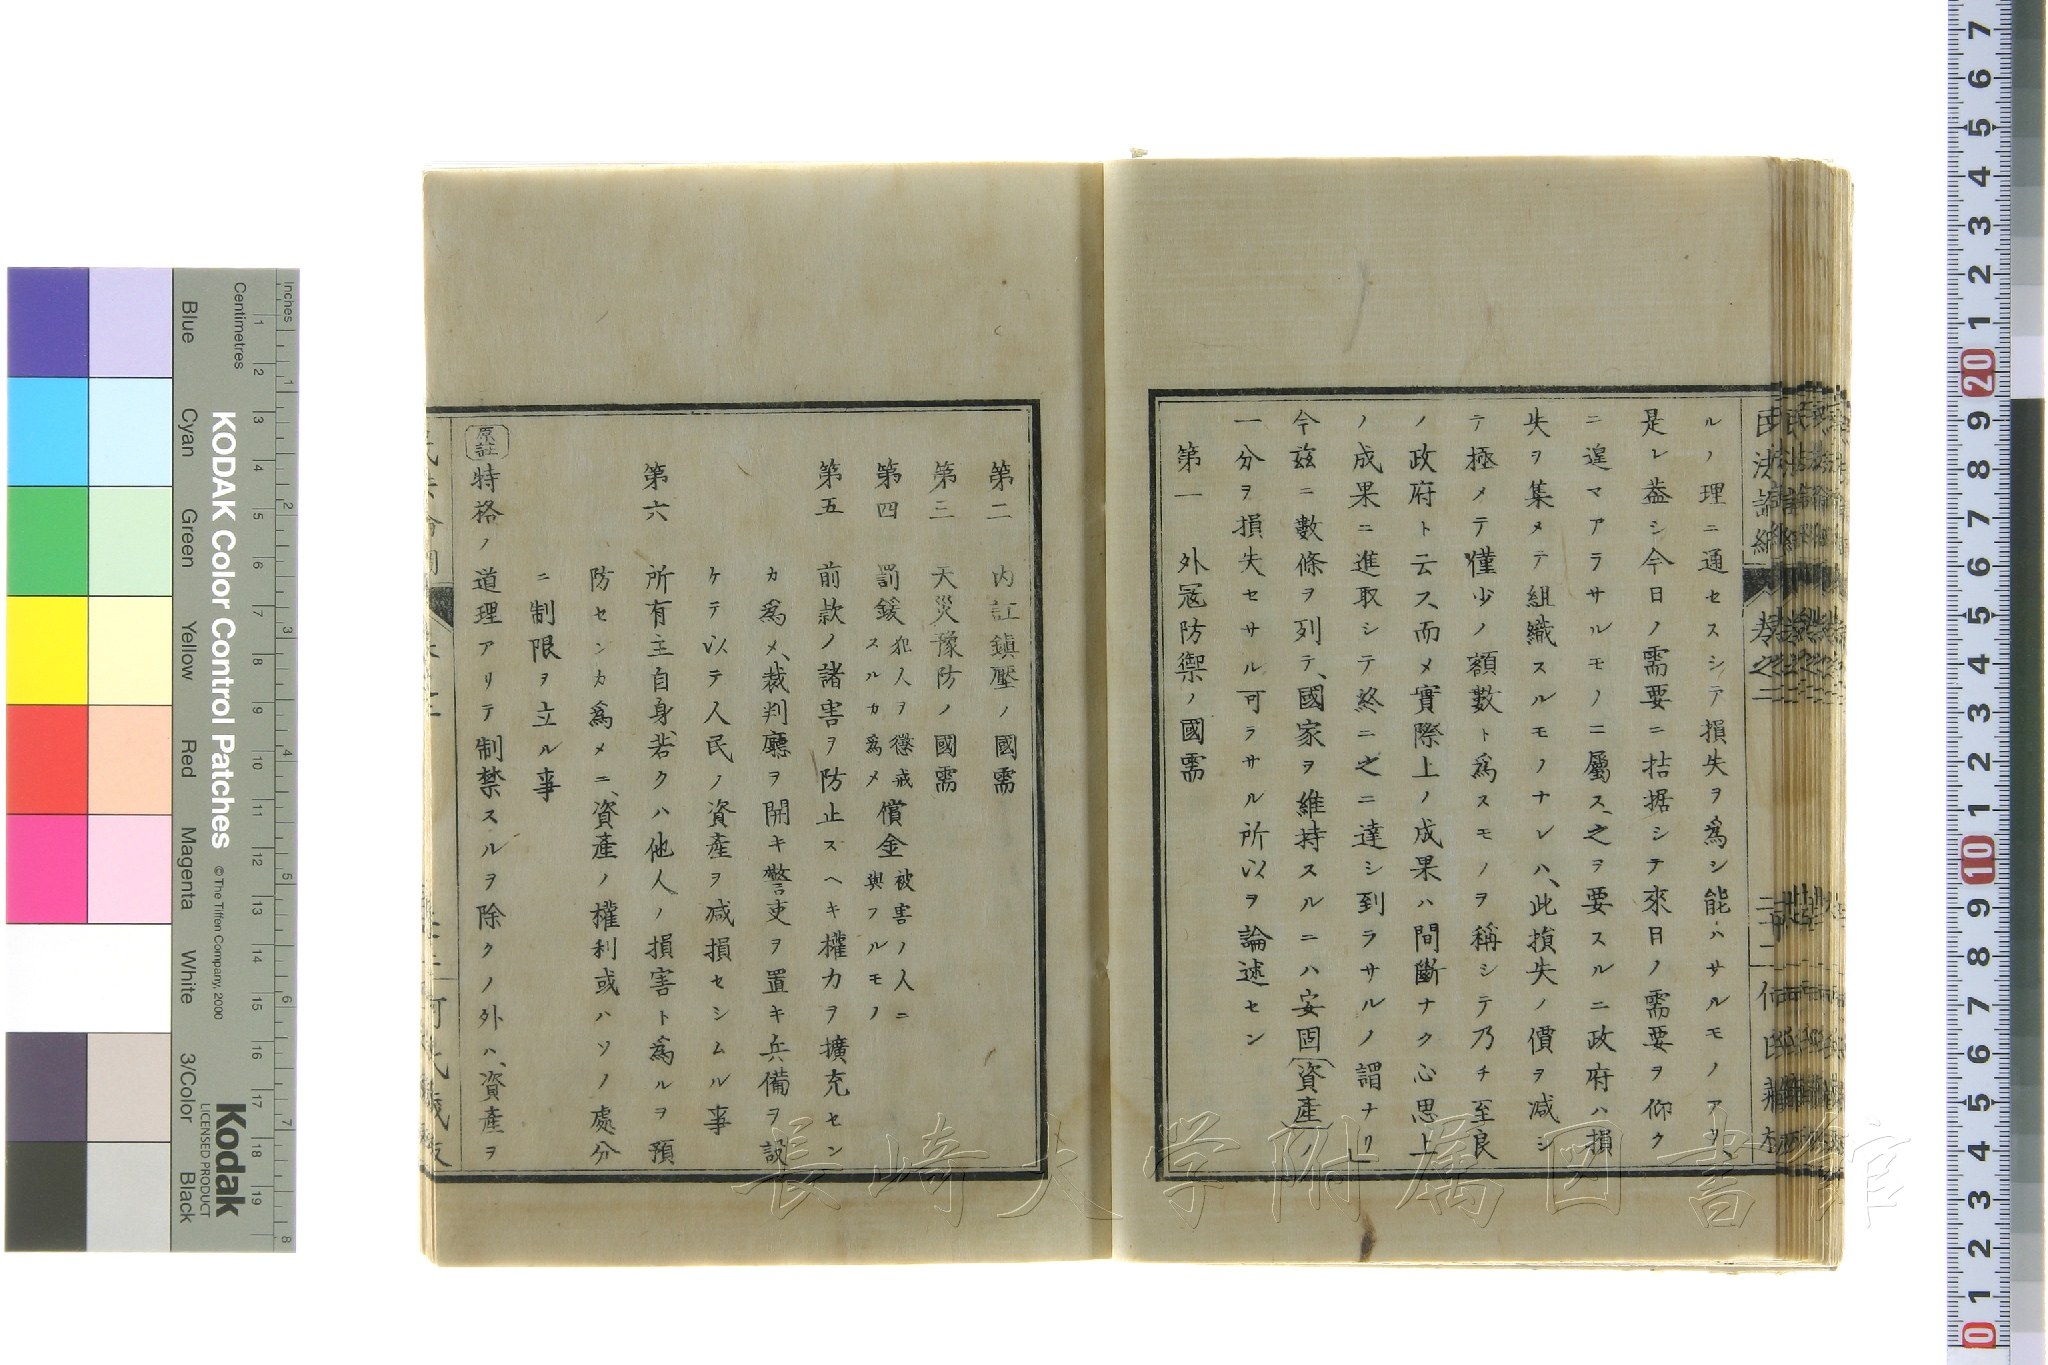 ルノ理ニ通セスシテ損失ヲ爲シ能ハサルモノアラ
是レ葢シ今日ノ需要ニ拮据シテ來日ノ需要ヲ仰ク
ニ遑マアラサルモノニ屬ス、之ヲ要スルニ政府ハ損
失ヲ集メテ組織スルモノナレハ、此損失ノ價ヲ減シ
テ極メテ僅少ノ額數ト爲スモノヲ稱シテ乃チ至良
ノ政府ト云フ、而メ實際上ノ成果ハ間斷ナク心思上
ノ成果ニ進取シテ終ニ之ニ達シ到ラサルノ謂ナリ」
今茲ニ數條ヲ列テ、國家ヲ維持スルニハ安固(資產)ノ
一分ヲ損失セサル可ラサル所以ヲ論述セン
第一 外冦防禦ノ國需
第二 內訌鎭壓ノ國需
第三 天災豫防ノ國需
第四 罰鍰犯人ヲ懲戒スルカ爲メ償金被害ノ人ニ與フルモノ
第五 前款ノ諸害ヲ防止スヘキ權力ヲ擴充セン
カ爲メ、裁判廳ヲ開キ警吏ヲ置キ兵備ヲ設
ケテ以テ人民ノ資產ヲ減損セシムル事
第六 所有主自身、若クハ他人ノ損害ト爲ルヲ預
防センカ爲メニ、資產ノ權利或ハソノ處分
ニ制限ヲ立ル事
原註 特格ノ道理アリテ制禁スルヲ除クノ外ハ、資產ヲ
民法論綱 卷之二
長崎大学附属図書館
KODAK Color Control Patches
© The Tiffen Company, 2000
Kodak
LICENSED PRODUCT
Inches
Centimetres
Blue
Cyan
Green
Yellow
Red
Magenta
White
3/Color
Black